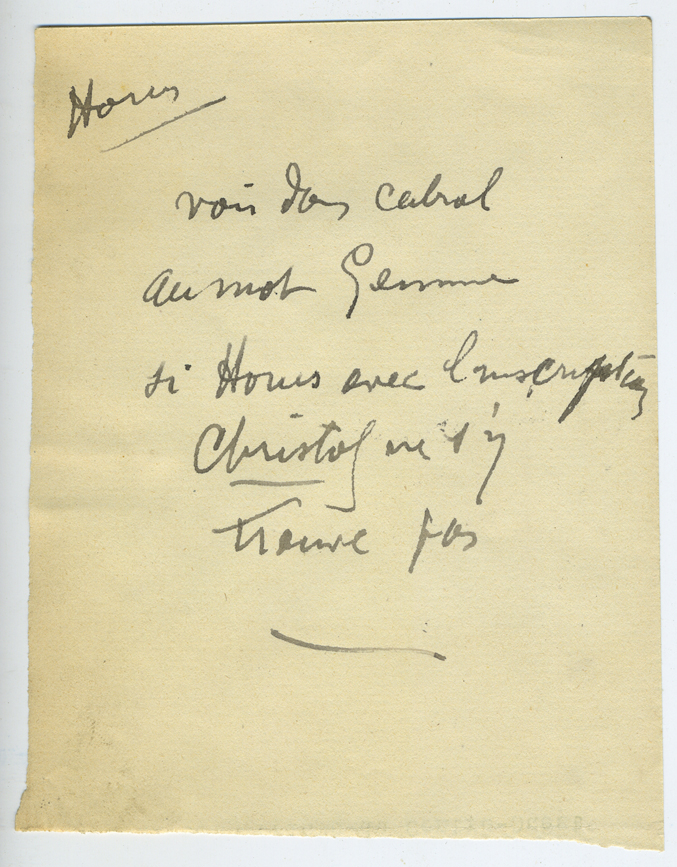 Horus
voir dans cabrol
au mot Gemme
si Horus avec l'inscription
Christos ne s'y
trouve pas